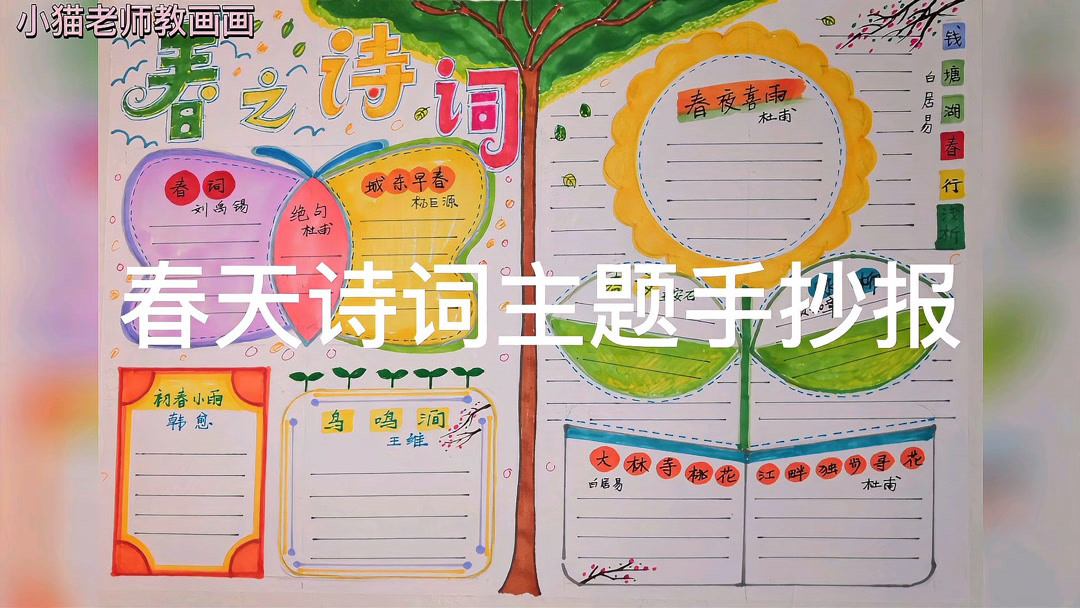 小猫老师教画画
春之诗词
春词
刘禹锡
绝句
杜甫
城东早春
杨巨源
春夜喜雨
杜甫
钱塘湖春行
浅析
白居易
春天诗词主题手抄报
王安石
初春小雨
韩愈
鸟鸣涧
王维
大林寺桃花
白居易
江畔独步寻花
杜甫